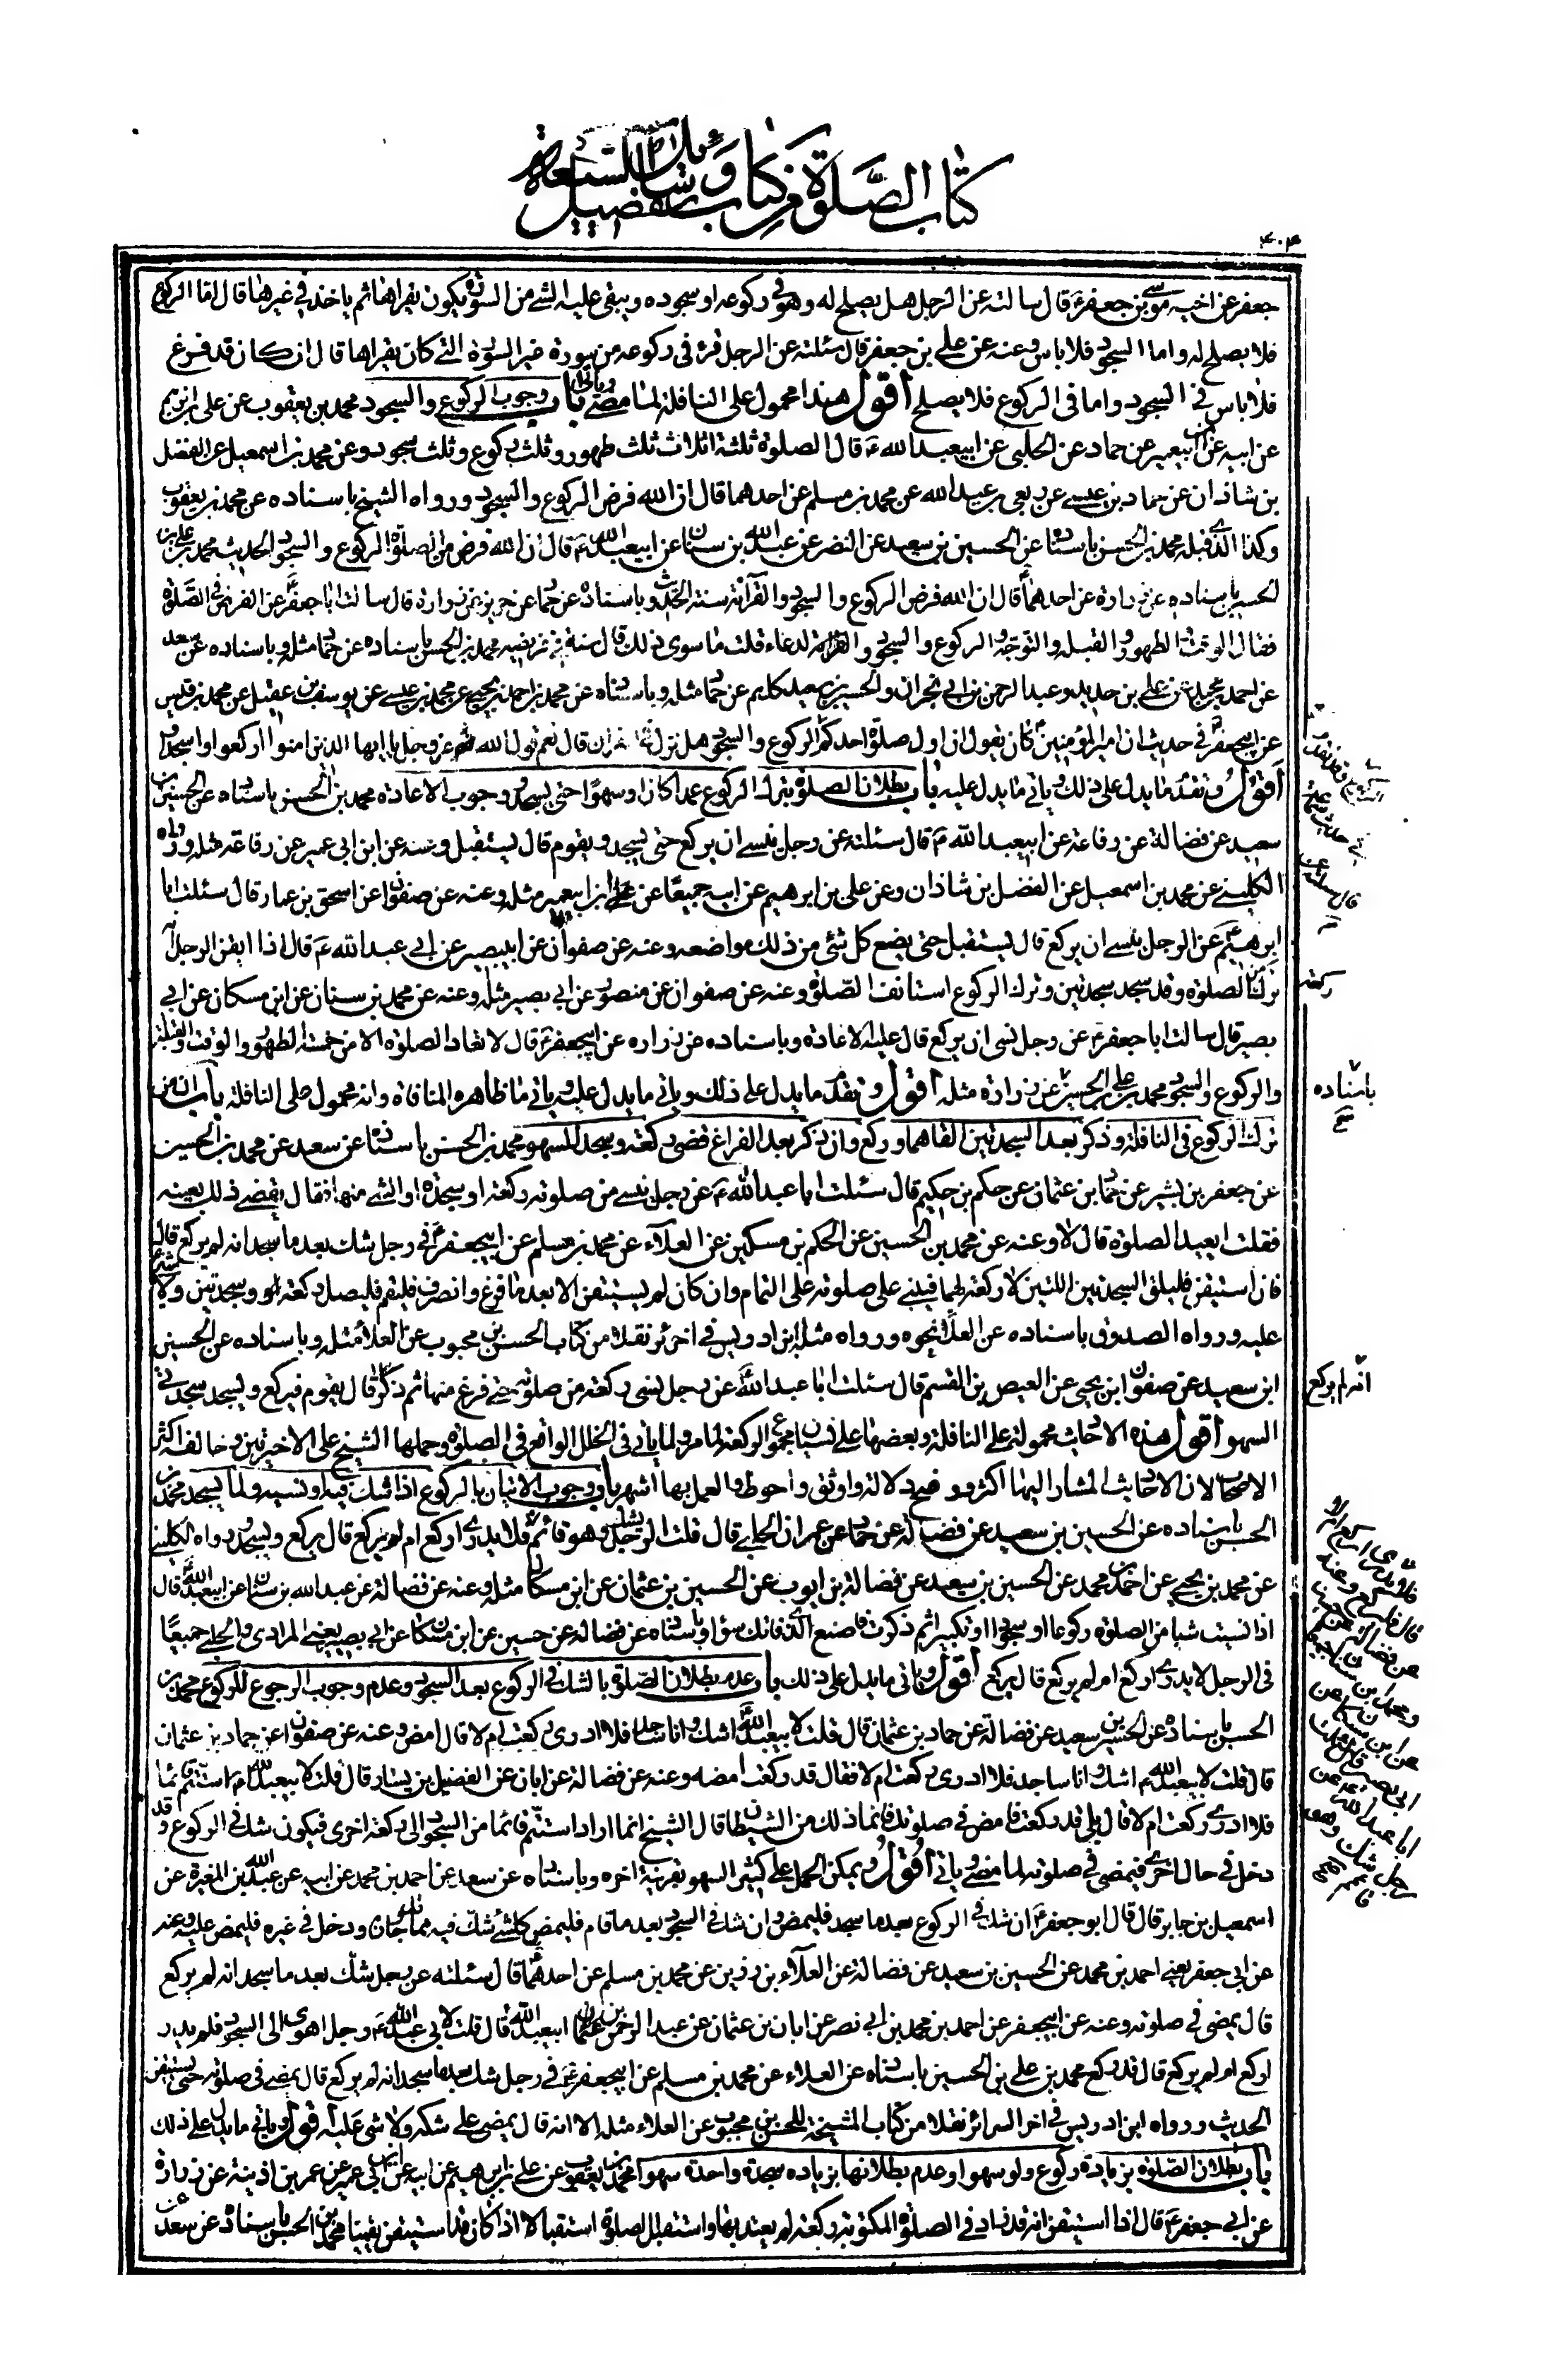 كتاب الصلوة من كتاب تفصيل وسائل الشيعة
٤٠٤
جعفر عن اخيه موسى بن جعفر ع قال سالته عن الرجل هل يصلح له وهو في ركوعه او سجوده ويبقى عليه الشئ من السورة يكون يقراها ثم ياخذ في غيرها قال اما الركوع
فلا يصلح له واما السجود فلا باس وعنه عن علي بن جعفر قال سئلته عن الرجل قرء في ركوعه من سورة غير السورة التي كان يقراها قال ان كان قد فرغ
فلا باس في السجود واما في الركوع فلا يصلح اقول هذا محمول على النافلة لما مضى وياتي باب وجوب الركوع والسجود محمد بن يعقوب عن علي بن ابرهيم
عن ابيه عن ابن ابيعمير عن حماد عن الحلبي عن ابيعبد الله ع قال الصلوة ثلثة اثلاث ثلث طهور وثلث ركوع وثلث سجود وعن محمد بن اسمعيل عن الفضل
بن شاذان عن حماد بن عيسى عن ربعي بن عبد الله عن محمد بن مسلم عن احدهما قال ان الله فرض الركوع والسجود ورواه الشيخ باسناده عن محمد بن يعقوب
وكذا الذي قبله محمد بن الحسن باسناده عن الحسين بن سعيد عن النضر عن عبد الله بن سنان عن ابيعبد الله ع قال ان الله فرض من الصلوة الركوع والسجود الحديث محمد بن علي بن
الحسين باسناده عن زرارة عن احدهما ع قال ان الله فرض الركوع والسجود والقراءة سنة الحديث وباسناده عن حماد عن حريز عن زرارة قال سالت ابا جعفر ع عن الفرض في الصلوة
فقال الوقت والطهور والقبلة والتوجه والركوع والسجود والدعاء قلت ما سوى ذلك قال سنة في فريضة محمد بن الحسن باسناده عن حماد مثله وباسناده عن سعد
عن احمد بن محمد عن علي بن حديد وعبد الرحمن بن ابي نجران والحسين بن سعيد كلهم عن حماد مثله وباسناده عن محمد بن احمد بن يحيى عن محمد بن عيسى عن يوسف بن عقيل عن محمد بن قيس
عن ابيجعفر ع في حديث ان امير المؤمنين ع كان يقول ان اول صلوة احدكم الركوع والسجود هل نزل في القران قال نعم قول الله عز وجل يا ايها الذين امنوا اركعوا واسجدوا
اقول وتقدم ما يدل على ذلك وياتي ما يدل عليه باب بطلان الصلوة بترك الركوع عمدا كان او سهوا حتى يسجد ووجوب الاعادة محمد بن الحسن باسناده عن الحسين بن
سعيد عن فضالة عن رفاعة عن ابيعبد الله ع قال سئلته عن رجل ينسى ان يركع حتى يسجد ويقوم قال يستقبل وعنه عن ابن ابي عمير عن رفاعة مثله ورواه
الكليني عن محمد بن اسمعيل عن الفضل بن شاذان وعن علي بن ابرهيم عن ابيه جميعا عن ابن ابيعمير مثله وعنه عن صفوان عن اسحق بن عمار قال سئلت ابا
ابرهيم ع عن الرجل ينسى ان يركع قال يستقبل حتى يضع كل شئ من ذلك مواضعه وعنه عن صفوان عن ابيبصير عن ابي عبد الله ع قال اذا ايقن الرجل انه
ترك من الصلوة وقد سجد سجدتين وترك الركوع استانف الصلوة وعنه عن صفوان عن منصور عن ابي بصير مثله وعنه عن محمد بن سنان عن ابن مسكان عن ابي
بصير قال سالت ابا جعفر ع عن رجل نسى ان يركع قال عليه الاعادة وباسناده عن زراره عن ابيجعفر ع قال لا تعاد الصلوة الا من خمسة الطهور والوقت والقبلة
والركوع والسجود محمد بن علي بن الحسين عن زرارة مثله اقول وتقدم ما يدل على ذلك وياتي ما يدل عليه وياتي ما ظاهره المنافاة وانه محمول على النافلة باب ان من
ترك الركوع في النافلة وذكر بعد السجدتين القاهما وركع وان ذكر بعد الفراغ قضى ركعة وسجد للسهو محمد بن الحسن باسناده عن سعد عن محمد بن الحسين
عن جعفر بن بشير عن حماد بن عثمان عن حكم بن حكيم قال سئلت ابا عبد الله ع عن رجل ينسى من صلوته ركعة او سجدة او الشئ منها فقال يقضى ذلك بعينه
فقلت ايعيد الصلوة قال لا وعنه عن محمد بن الحسين عن الحكم بن مسكين عن العلاء عن محمد بن مسلم عن ابيجعفر ع في رجل شك بعد ما سجد انه لم يركع قال
فان استيقن فليلق السجدتين اللتين لا ركعة لهما فيبني على صلوته على التمام وان كان لم يستيقن الا بعد ما فرغ وانصرف فليقم فليصل ركعة وسجدتين ولا شئ
عليه ورواه الصدوق باسناده عن العلا نحوه ورواه مثله ابن ادريس في اخر ئر نقلا من كتاب الحسن بن محبوب عن العلا مثله وباسناده عن الحسين
ابن سعيد عن صفوان ابن يحيى عن العيص بن القسم قال سئلت ابا عبد الله ع عن رجل نسى ركعة من صلوته حتى فرغ منها ثم ذكر قال يقوم فيركع ويسجد سجدتي
السهو اقول هذه الاحاديث محمولة على النافلة وبعضها على نسيان مجموع الركعة لما مر ولما ياتي في الخلل الواقع في الصلوة وحملها الشيخ على الاخيرتين وخالفه اكثر
الاصحاب لان الاحاديث المشار اليها اكثر واوضح دلالة واوثق واحوط والعمل بها اشهر باب وجوب الاتيان بالركوع اذا شك فيه او نسيه ولما يسجد محمد بن
الحسن باسناده عن الحسين بن سعيد عن فضالة عن حماد عن عمران الحلبي قال قلت الرجل يشك وهو قائم فلا يدري اركع ام لم يركع قال يركع ويسجد ورواه الكليني
عن محمد بن يحيى عن احمد بن محمد عن الحسين بن سعيد عن فضالة بن ايوب عن الحسين بن عثمان عن ابن مسكان مثله وعنه عن فضالة عن عبد الله بن سنان عن ابيعبد الله ع قال
اذا نسيت شيا من الصلوة ركوعا او سجودا او تكبيرا ثم ذكرت فاصنع الذي فاتك سوا وباسناده عن فضالة عن حسين عن ابن مسكان عن ابي بصير يعني المرادي والحلبي جميعا
في الرجل لا يدري اركع ام لم يركع قال يركع اقول وياتي ما يدل على ذلك باب عدم بطلان الصلوة بالشك في الركوع بعد السجود وعدم وجوب الرجوع للركوع محمد بن
الحسن باسناده عن الحسين بن سعيد عن فضالة عن حماد بن عثمان قال قلت لابيعبد الله ع اشك وانا ساجد فلا ادري ركعت ام لا قال امض وعنه عن صفوان عن حماد بن عثمان
قال قلت لابيعبد الله ع اشك وانا ساجد فلا ادري ركعت ام لا فقال قد ركعت امضه وعنه عن فضالة عن ابان عن الفضيل بن يسار قال قلت لابيعبد الله ع استتم قائما
فلا ادري ركعت ام لا قال بلى قد ركعت فامض في صلوتك فانما ذلك من الشيطان قال الشيخ انما اراد استتم قائما من السجود الى ركعة اخرى فيكون شك في الركوع وقد
دخل في حال اخرى فيمضي في صلوته لما مضى وياتي اقول ويمكن الحمل على كثير السهو بقرينة اخره وباسناده عن سعد عن احمد بن محمد عن ابيه عن عبد الله بن المغيرة عن
اسمعيل بن جابر قال قال ابو جعفر ع ان شك في الركوع بعد ما سجد فليمض وان شك في السجود بعد ما قام فليمض كل شئ شك فيه مما قد جاوزه ودخل في غيره فليمض عليه وعنه
عن ابي جعفر يعني احمد بن محمد عن الحسين بن سعيد عن فضالة عن العلاء بن رزين عن محمد بن مسلم عن احدهما ع قال سئلته عن رجل شك بعد ما سجد انه لم يركع
قال يمضي في صلوته وعنه عن ابيجعفر عن احمد بن محمد بن ابي نصر عن ابان بن عثمان عن عبد الرحمن بن ابيعبد الله قال قلت لابي عبد الله ع رجل اهوى الى السجود فلم يدر
اركع ام لم يركع قال قد ركع محمد بن علي بن الحسين باسناده عن العلاء عن محمد بن مسلم عن ابيجعفر ع في رجل شك بعد ما سجد انه لم يركع قال يمضي في صلوته حتى يستيقن
الحديث ورواه ابن ادريس في اخر السرائر نقلا من كتاب المشيخة للحسن بن محبوب عن العلاء مثله الا انه قال يمضي على شكه ولا شئ عليه اقول وياتي ما يدل على ذلك
باب بطلان الصلوة بزيادة ركوع ولو سهوا وعدم بطلانها بزيادة سجدة واحدة سهوا محمد بن يعقوب عن علي بن ابرهيم عن ابيه عن ابن ابي عمير عن عمر بن اذينة عن زرارة
عن ابي جعفر ع قال اذا استيقن انه قد زاد في الصلوة المكتوبة ركعة لم يعتد بها واستقبل الصلوة استقبالا اذا كان قد استيقن يقينا محمد بن الحسن باسناده عن سعد عن
ركعة
باسناده
انه لم يركع